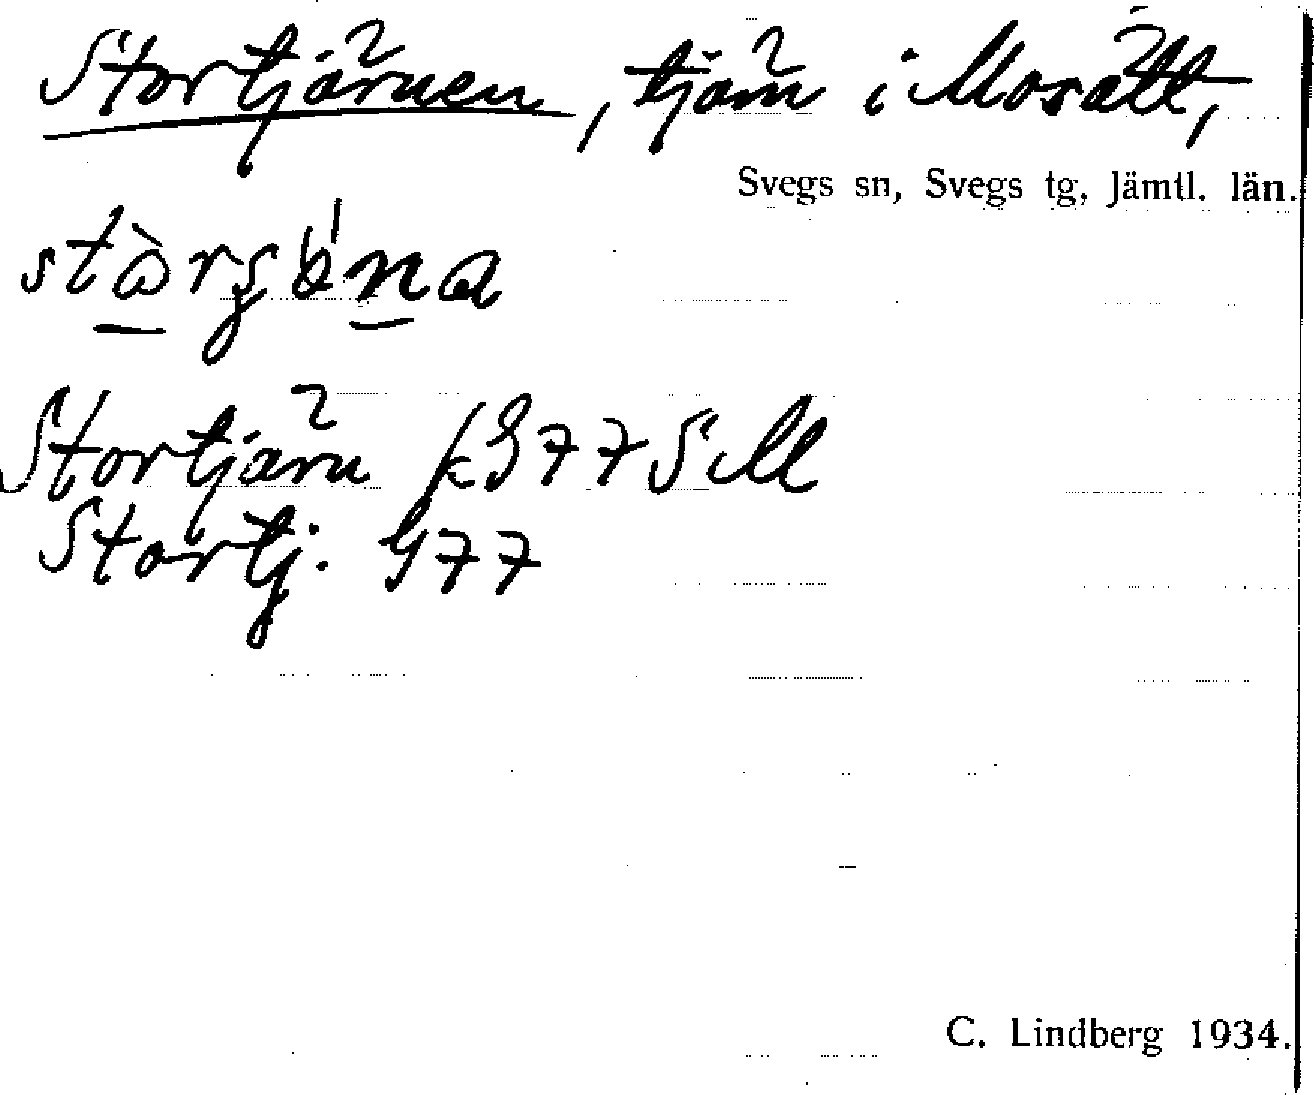 Stortjärnen, tjärn i Mosätt,
Svegs sn, Svegs tg, Jämtl. län.
Stortjärn
Stortj. G77
C. Lindberg 1934.